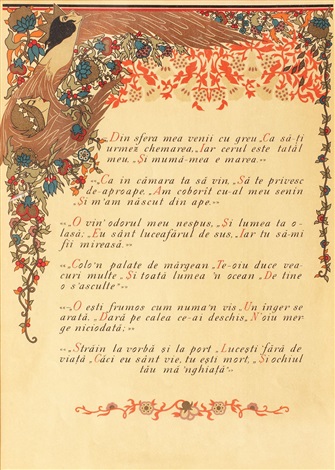 „Din sfera mea venii cu greu „Ca să-ți
urmez chemarea, „Iar cerul este tatăl
meu, „Și mumă-mea e marea.
„Ca în cămara ta să vin, „Să te privesc
de-aproape, „Am coborît cu-al meu senin
„Și m'am născut din ape.
„O vin' odorul meu nespus, „Și lumea ta o-
lasă; „Eu sânt luceafărul de sus, „Iar tu să-mi
fii mireasă.
„Colo'n palate de mărgean „Te-oiu duce vea-
curi multe „Și toată lumea 'n ocean „De tine
o s'asculte"
„O ești frumos cum numa'n vis „Un înger se
arată, „Dară pe calea ce-ai deschis „N'oiu mer
ge niciodată;
„Străin la vorbă și la port „Lucești fără de
viață „Căci eu sânt vie, tu ești mort, „Și ochiul
tău mă 'nghiață"